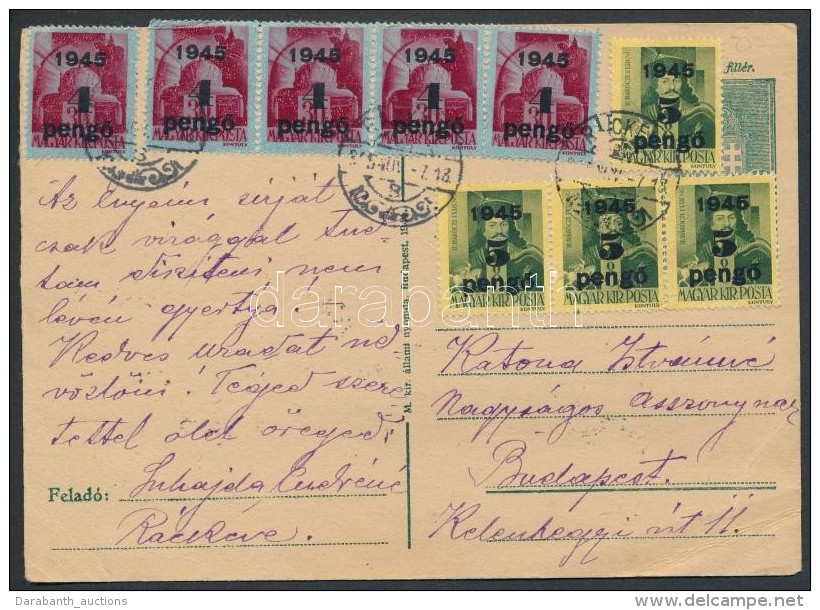 1945 1945 1945 1945 1945 1945
1 1 1 1 1 5
pengő pengő pengő pengő pengő pengő
MAGYAR KIR POSTA MAGYAR KIR POSTA MAGYAR KIR POSTA MAGYAR KIR POSTA MAGYAR KIR POSTA MAGYAR KIR POSTA
fillér.
1945 1945 1945
5 5 5
pengő pengő pengő
MAGYAR KIR POSTA MAGYAR KIR POSTA MAGYAR KIR POSTA
Az sirját
csak virággal tud-
tam disziteni nem
lévén gyertya!
Kedves uradat üd
vözlöm! Téged szere
tettel ölel öreged:
Feladó: Suhajda Endréné
Ráckeve.
M. kir. állami nyomda, Budapest.
Katona Istvánné
Nagyságos asszonynak
Budapest.
Kelenhegyi út 11.
darabanth
Darabanth_auctions
delcampe.net